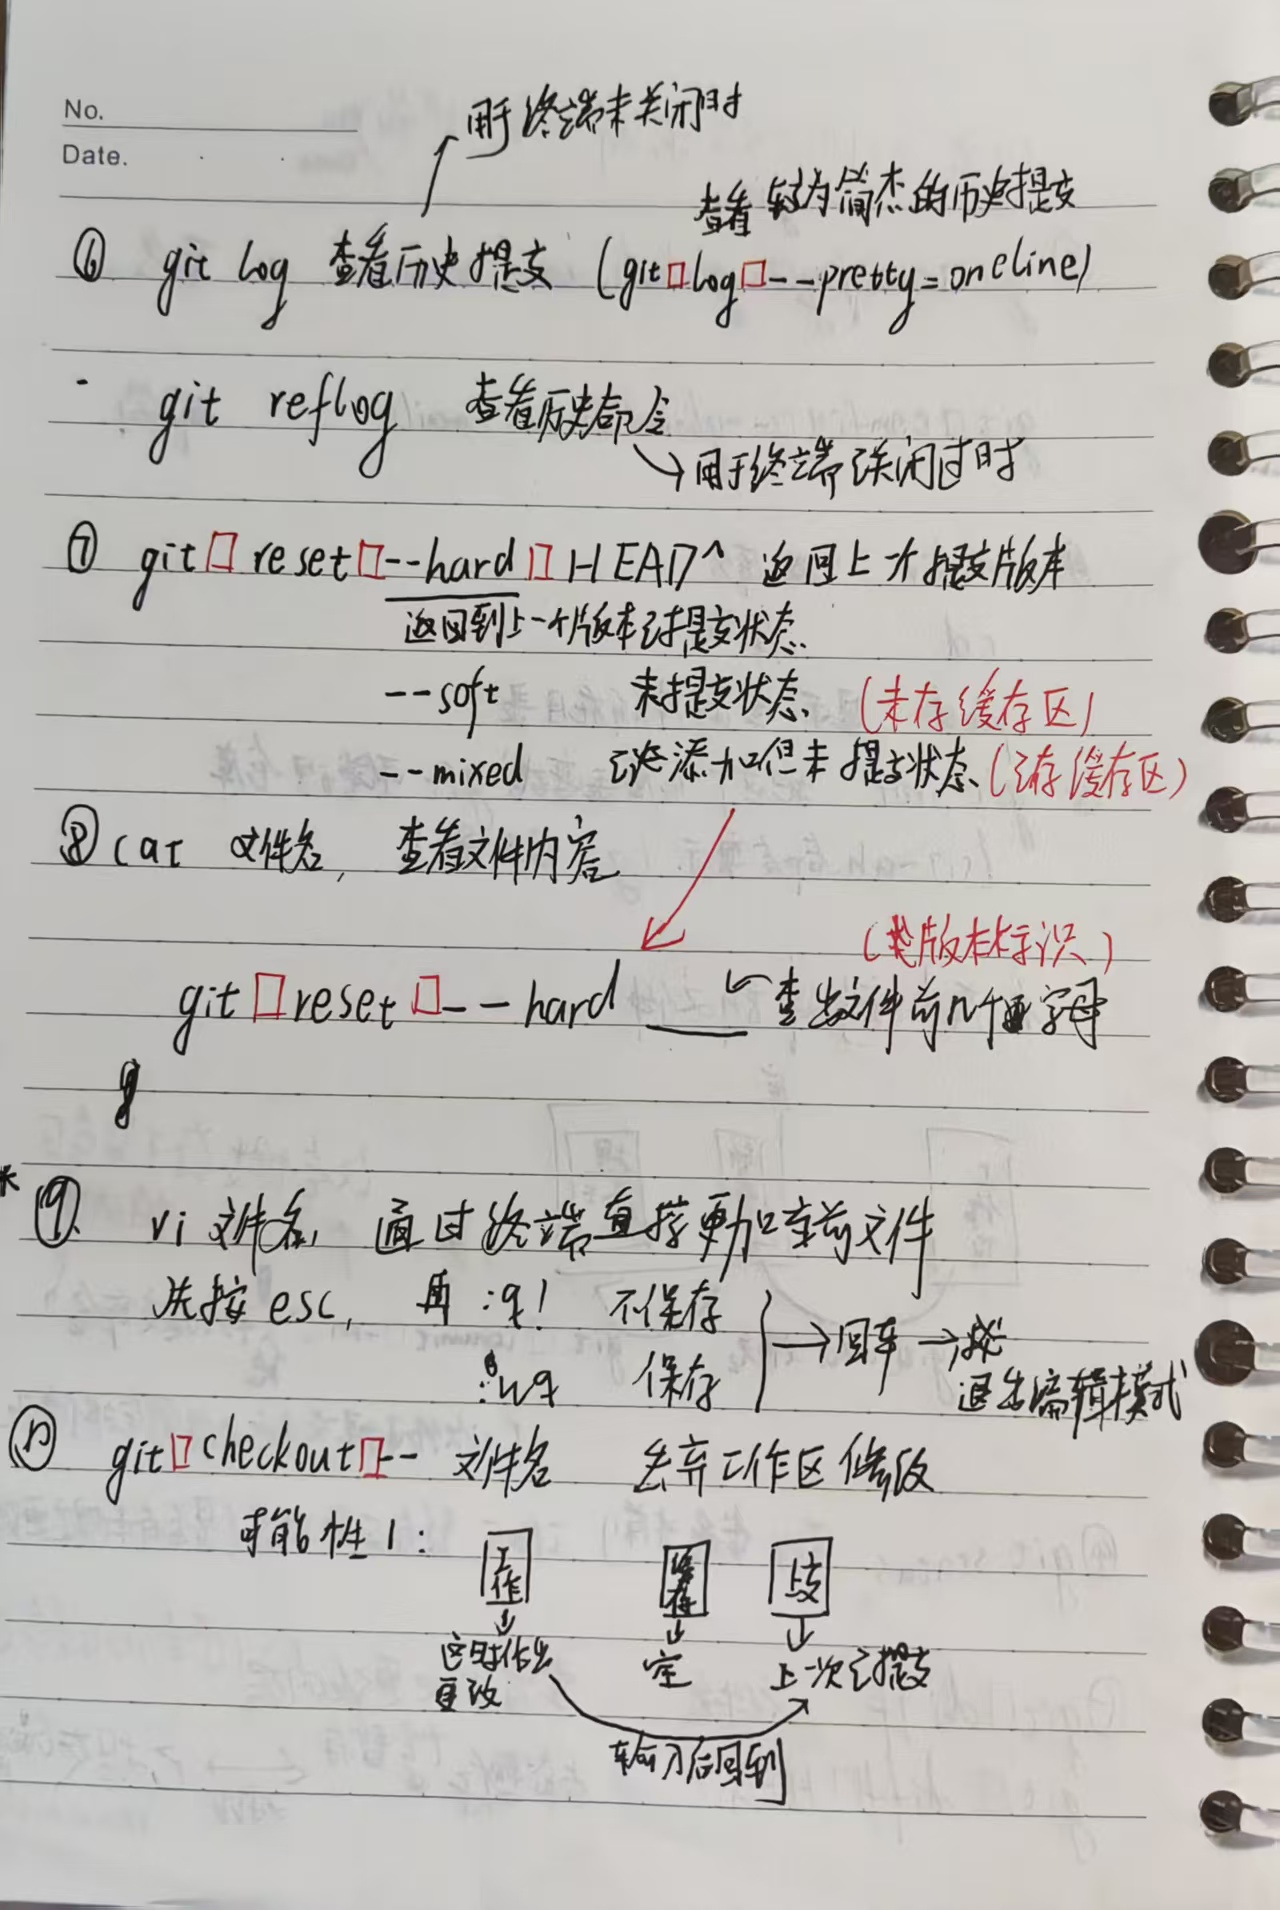 No.
Date.
用于终端未关闭时
查看较为简杰的历史提交
⑥ git log 查看历史提交 (git□log□--pretty=oneline)
git reflog 查看历史命令
用于终端已关闭过时
⑦ git□reset□--hard□HEAD^ 返回上一个提交版本
返回到上一个版本已提交状态
--soft 未提交状态 (未存缓存区)
--mixed 已添加但未提交状态 (已存缓存区)
⑧ cat 文件名, 查看文件内容
(版本标识)
git□reset□--hard 查出文件前几个字母
⑨ vi 文件名, 通过终端直接更动当前文件
先按esc, 再 :q! 不保存
:wq 保存
→回车→
退出编辑模式
⑩ git□checkout□-- 文件名 丢弃工作区修改
可能性1:
工作 缓存 上交
这时作出更改
空
上次已提交
输入后回到